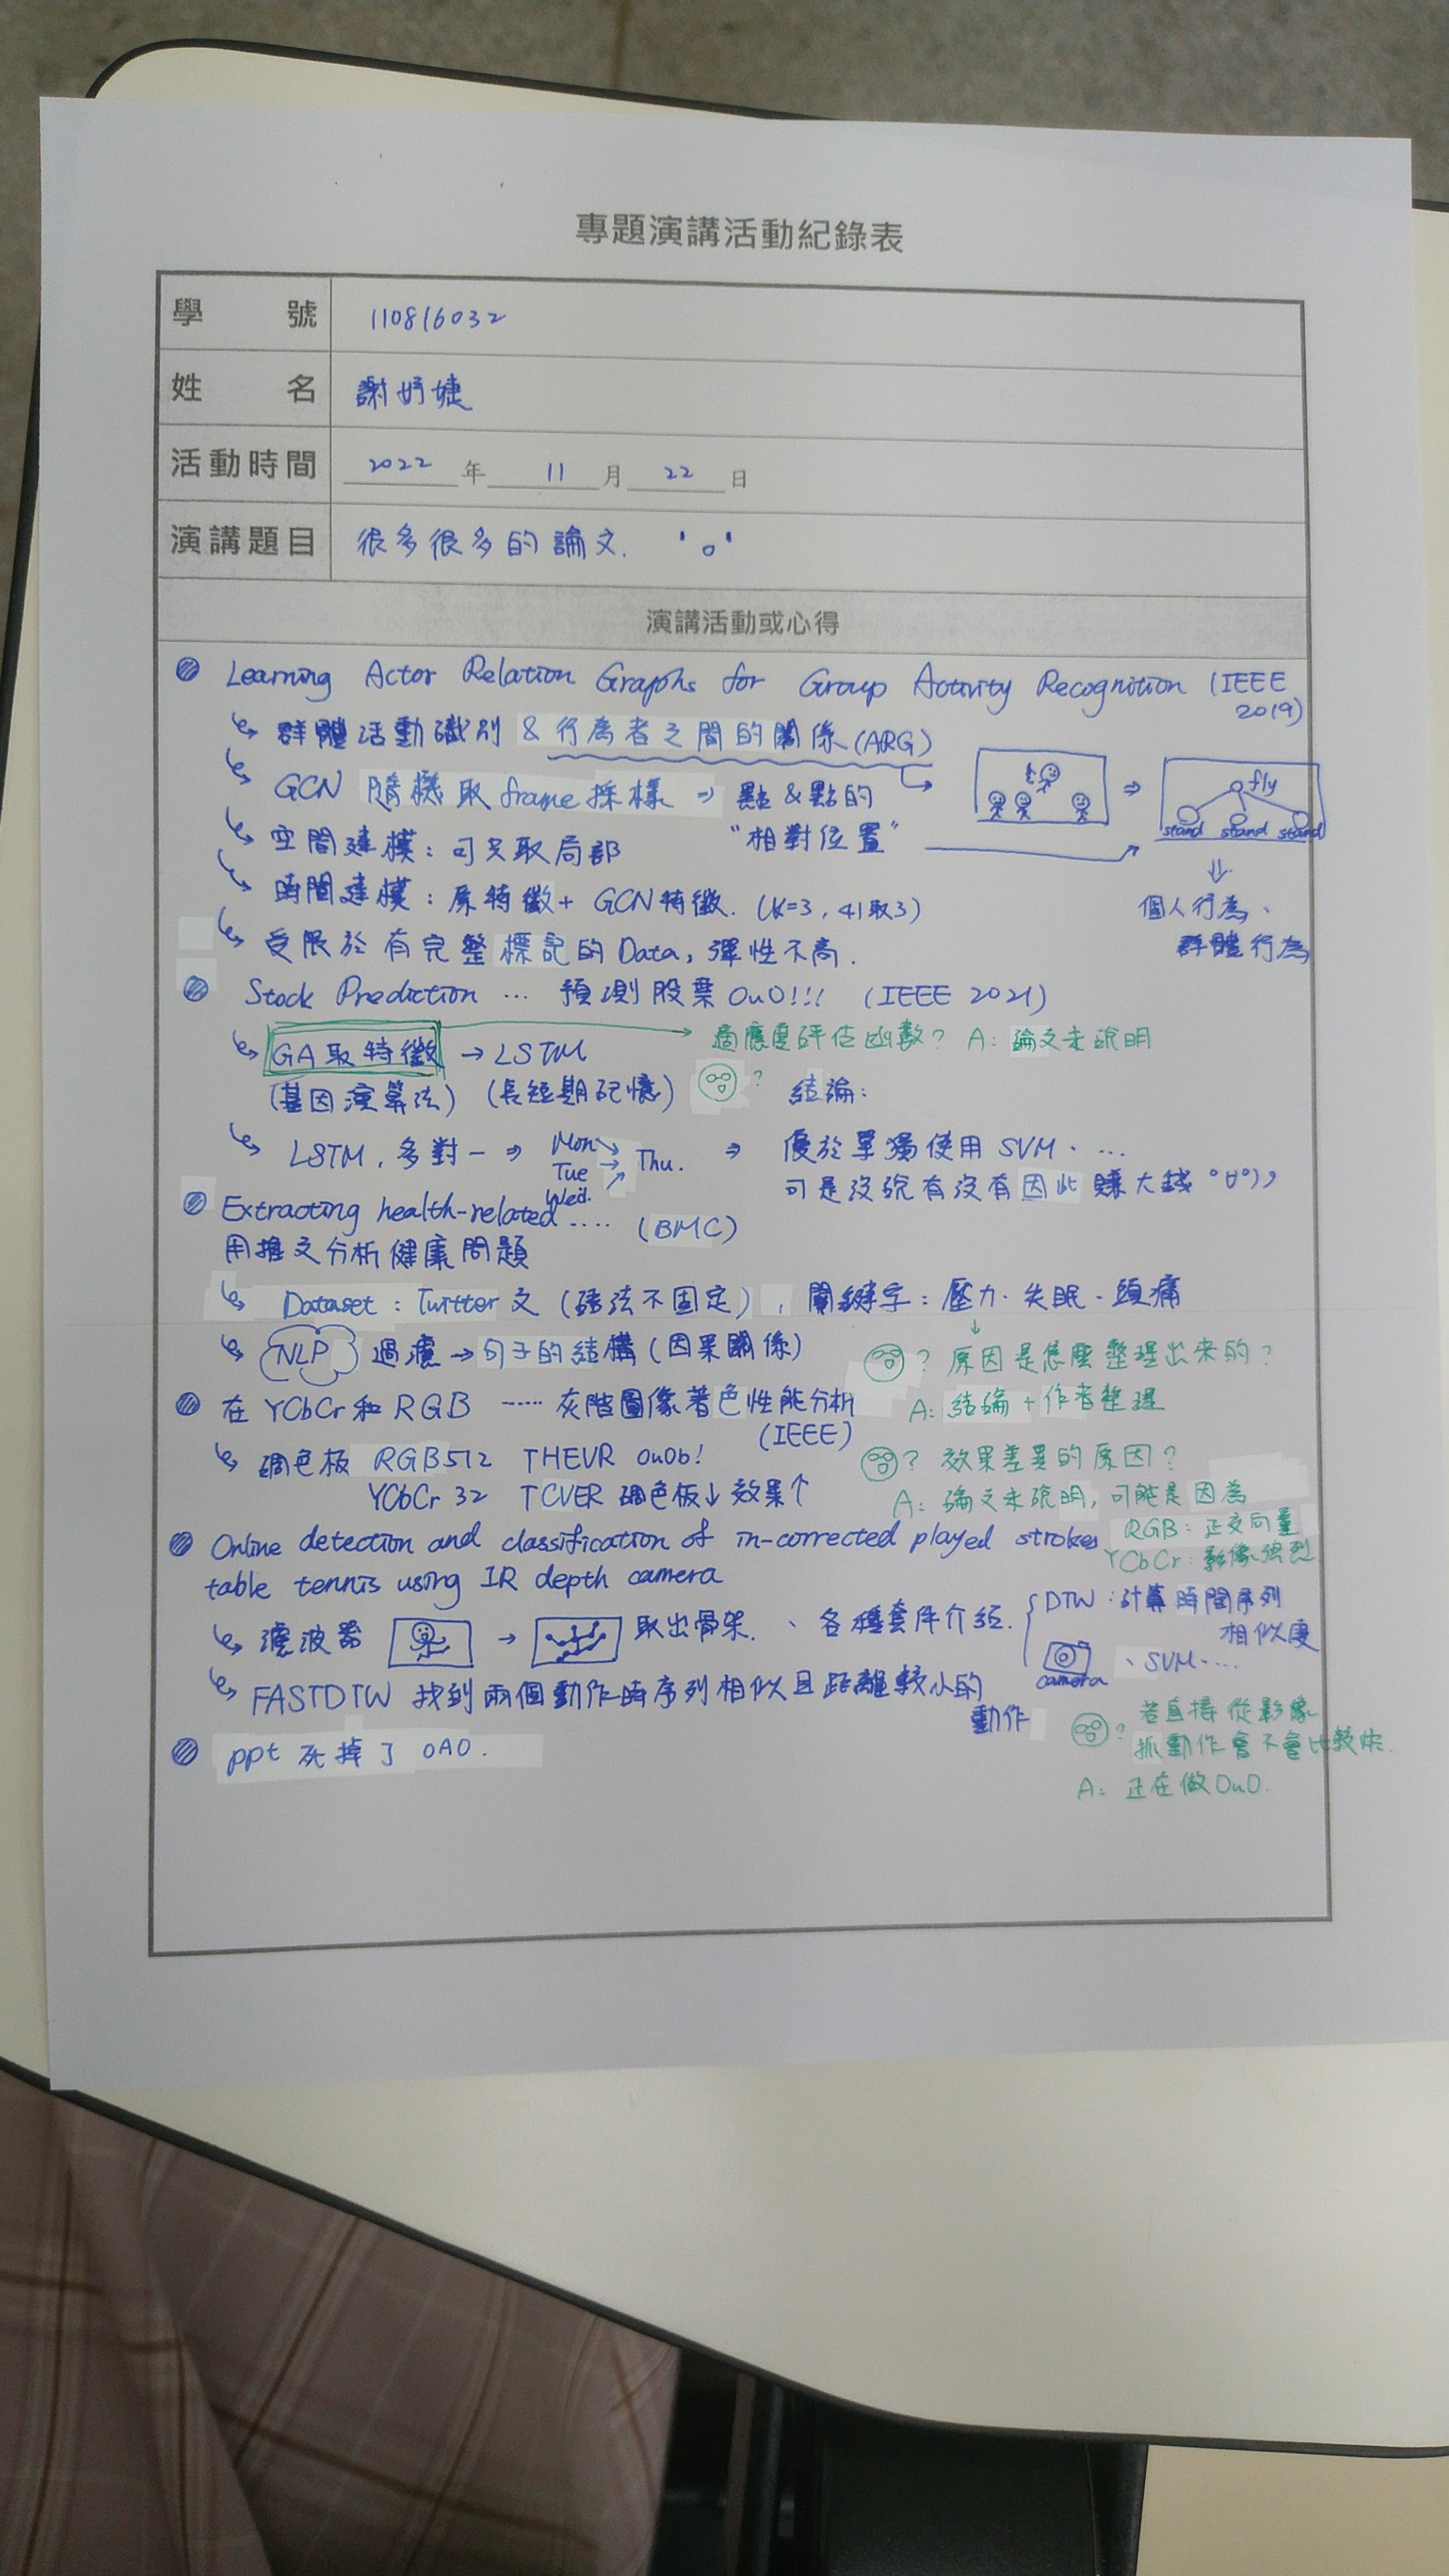 專題演講活動紀錄表
學號 110816032
姓名 謝妤婕
活動時間 2022 年 11 月 22 日
演講題目 很多很多的論文. 'o'
演講活動或心得
Learning Actor Relation Graphs for Group Activity Recognition (IEEE 2019)
群體活動識別 & 行為者之間的關係 (ARG)
GCN 隨機取 frame 採樣 ⇒ 點 & 點的 "相對位置"
fly
stand stand stand
空間建模: 可只取局部
時間建模: 原特徵 + GCN特徵. (K=3, 41取3)
⇓
個人行為、
群體行為
受限於有完整標記的 Data, 彈性不高.
Stock Prediction ... 預測股票 OuO!!! (IEEE 2021)
GA取特徵 → LSTM
(基因演算法) (長短期記憶)
適應度評估函數? A: 論文未說明
?
結論:
LSTM, 多對一 ⇒ Mon Tue Wed. → Thu. ⇒ 優於單獨使用 SVM、...
可是沒說有沒有因此賺大錢
Extracting health-related .... (BMC)
用推文分析健康問題
Dataset: Twitter 文 (語法不固定), 關鍵字: 壓力、失眠、頭痛
NLP 過濾 → 句子的結構 (因果關係)
? 原因是怎麼整理出來的?
A: 結論 + 作者整理
在 YCbCr 和 RGB ...... 灰階圖像著色性能分析
(IEEE)
調色板 RGB512 THEVR OuOb!
YCbCr 32 TCVER 調色板↓效果↑
? 效果差異的原因?
A: 論文未說明, 可能是因為
RGB: 正交向量
YCbCr: 影像強烈
Online detection and classification of in-corrected played strokes
table tennis using IR depth camera
濾波器 → 取出骨架. 、各種套件介紹.
DTW: 計算時間序列
相似度
camera 、SVM....
FASTDTW 找到兩個動作時序列相似且距離較小的
動作
? 若直接從影像
抓動作會不會比較快.
A: 正在做 OuO.
ppt 死掉了 OAO.